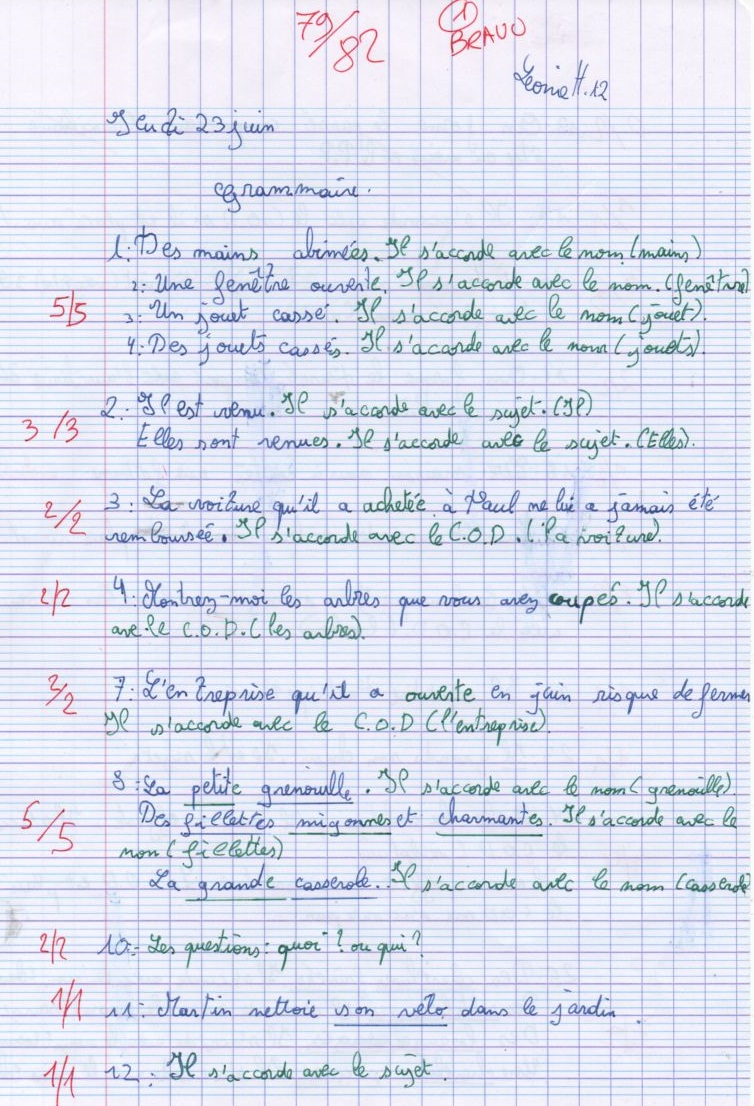 79/82
1
BRAVO
Leonie H. 12
Jeudi 23 juin
Grammaire.
1: Des mains abimées. Il s'accorde avec le nom (mains)
2: Une fenêtre ouverte. Il s'accorde avec le nom. (fenêtre)
5/5
3: Un jouet cassé. Il s'accorde avec le nom (jouet).
4: Des jouets cassés. Il s'accorde avec le nom (jouets).
3/3
2: Il est venu. Il s'accorde avec le sujet. (Il)
Elles sont venues. Il s'accorde avec le sujet. (Elles).
2/2
3: La voiture qu'il a achetée à Paul ne lui a jamais été
remboursée. Il s'accorde avec le C.O.D. (la voiture).
2/2
4: Montrez-moi les arbres que vous avez coupés. Il s'accorde
ave le C.O.D. (les arbres).
2/2
7: L'entreprise qu'il a ouverte en juin risque de fermer
Il s'accorde avec le C.O.D (l'entreprise).
8: La petite grenouille. Il s'accorde avec le nom (grenouille).
5/5
Des fillettes mignonnes et charmantes. Il s'accorde avec le
nom (fillettes)
La grande casserole. Il s'accorde avec le nom (casserole
2/2
10: Les questions: quoi? ou qui?
1/1
11: Martin nettoie son vélo dans le jardin.
1/1
12: Il s'accorde avec le sujet.